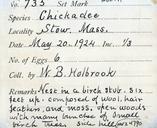 No. 733 Set Mark
Species Chickadee
Locality Stow, Mass.
Date May. 20. 1924 Inc. 1/3
No. of Eggs 6
Coll. by W. B. Holbrook
Remarks Nest in a birch stub. six
feet up. composed of wool, hair,
feathers, and moss, often woods
with many bunches of small
birch trees.